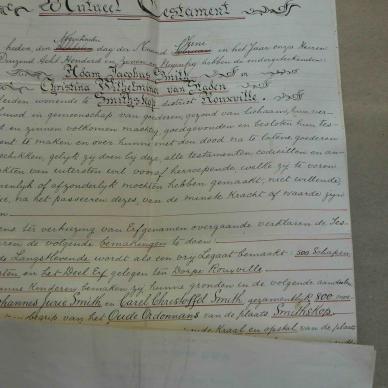 Mutueel Testament
heden, den Achttienden dag der Maand Junie in het Jaar onzes Heeren
Duizend Acht Honderd en Zeven en Negentig, hebben de ondergeteekenden
Adam Jacobus Smith
Christina Wilhelmina van Staden
beiden wonende te Smithskop district Rouxville,
in gemeenschap van goederen, gezond van lichaam, hun ver-
en zinnen volkomen machtig, goedgevonden en besloten hun Tes-
te maken en over hunne met den dood na te laten goederen
schikken, gelijk zij doen bij deze, alle testamenten codicillen en an-
van uitersten wil voorheen herroepende, welke zij te voren
of afzonderlijk mochten hebben gemaakt, niet willende,
na het passeeren dezes, van de minste Kracht of waarde zijn
ter verkiezing van Erfgenamen overgaande verklaren de Tes-
de volgende bemakingen te doen
de Langstlevende wordt als een vrij Legaat bemaakt 500 Schapen,
en het Deel Erf gelegen ten Dorpe Rouxville.
Kinderen bemaken zij hunne gronden in de volgende aandeelen
Johannes Jurie Smith en Carel Christoffel Smith gezamenlijk 800
van het Oude Ordonnans van de plaats Smithskop
oude Kraal en opstal van de plaats